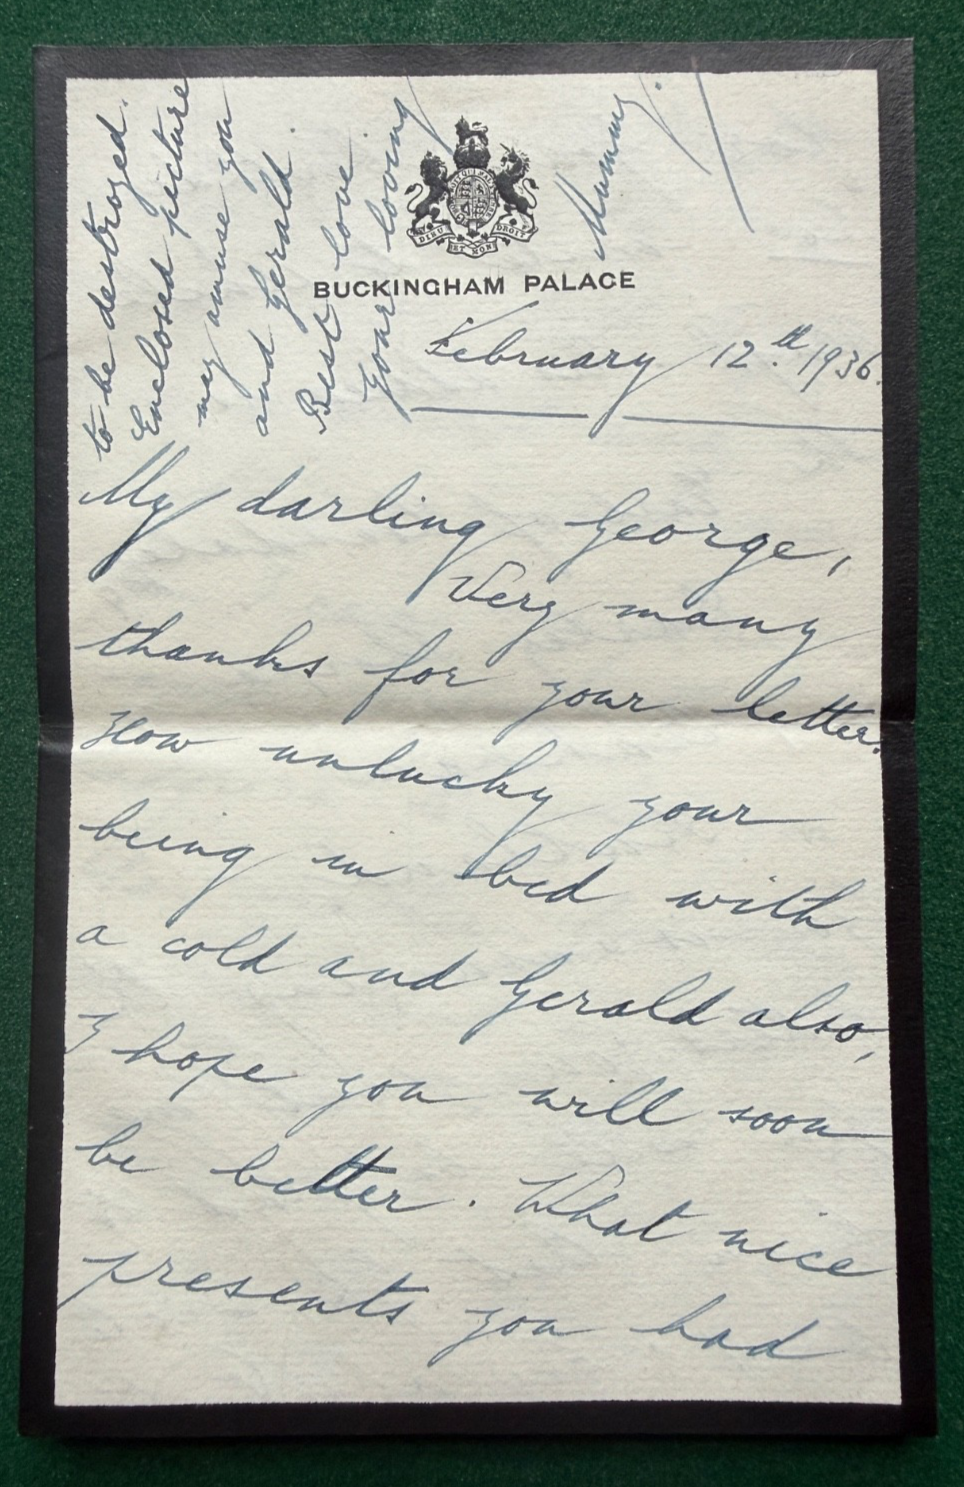 DIEU ET MON DROIT
BUCKINGHAM PALACE
February 12.th 1936.
My darling George,
Very many
thanks for your letter.
How unlucky your
being in bed with
a cold and Gerald also,
I hope you will soon
be better. What nice
presents you had
to be destroyed.
Enclosed picture
may amuse you
and Gerald.
Best love
your loving
Mummy.